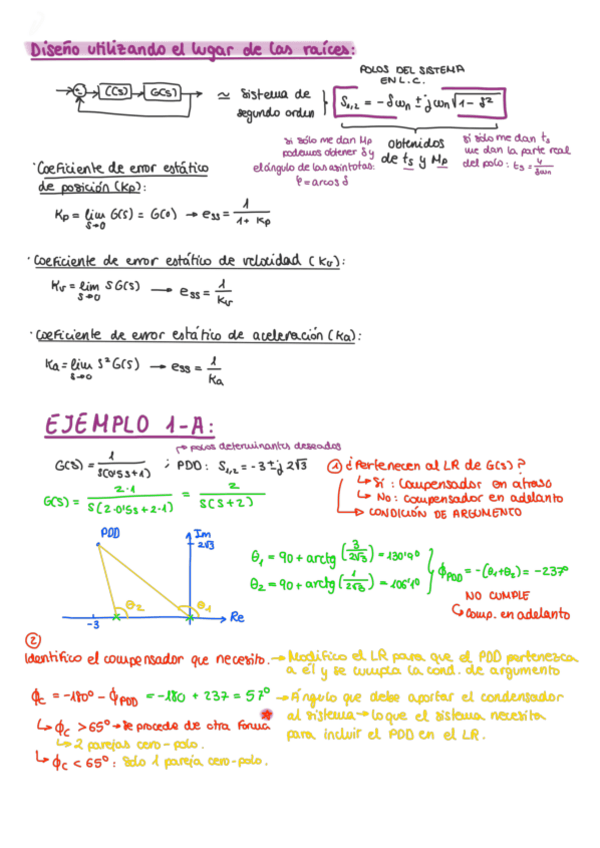 Diseño utilizando el lugar de las raíces:
C(s) G(s) ≃ sistema de segundo orden
POLOS DEL SISTEMA EN L.C.
S₁,₂ = -δωn ± jωn√(1-δ²)
obtenidos de ts y Mp
si sólo me dan Mp podemos obtener δ y el ángulo de las asíntotas: φ = arcos δ
si sólo me dan ts me dan la parte real del polo: ts = 4/δωn
· Coeficiente de error estático de posición (Kp):
Kp = lim s→0 G(s) = G(0) → ess = 1/(1+Kp)
· Coeficiente de error estático de velocidad (Kv):
Kv = lim s→0 sG(s) → ess = 1/Kv
· Coeficiente de error estático de aceleración (Ka):
Ka = lim s→0 s²G(s) → ess = 1/Ka
EJEMPLO 1-A:
→ polos determinantes deseados
G(s) = 1/(s(0'5s+1)) ; PDD: S₁,₂ = -3 ± j2√3
G(s) = 2·1/(s(2·0'5s+2·1)) = 2/(s(s+2))
① ¿Pertenecen al LR de G(s)?
↳ Sí: Compensador en atraso
↳ No: compensador en adelanto
→ CONDICIÓN DE ARGUMENTO
PDD
Im
2√3
θ₂ θ₁
Re
-3
θ₁ = 90 + arctg (3/2√3) = 130'9º
θ₂ = 90 + arctg (1/2√3) = 106'1º
ϕPDD = -(θ₁+θ₂) = -237º
NO CUMPLE
↳ Comp. en adelanto
②
Identifico el compensador que necesito. → Modifico el LR para que el PDD pertenezca
a él y se cumpla la cond. de argumento
ϕc = -180º - ϕPDD = -180 + 237 = 57º → Ángulo que debe aportar el condensador
al sistema → lo que el sistema necesita
para incluir el PDD en el LR.
↳ ϕc > 65º → se procede de otra forma *
↳ 2 parejas cero-polo.
↳ ϕc < 65º: sólo 1 pareja cero-polo.